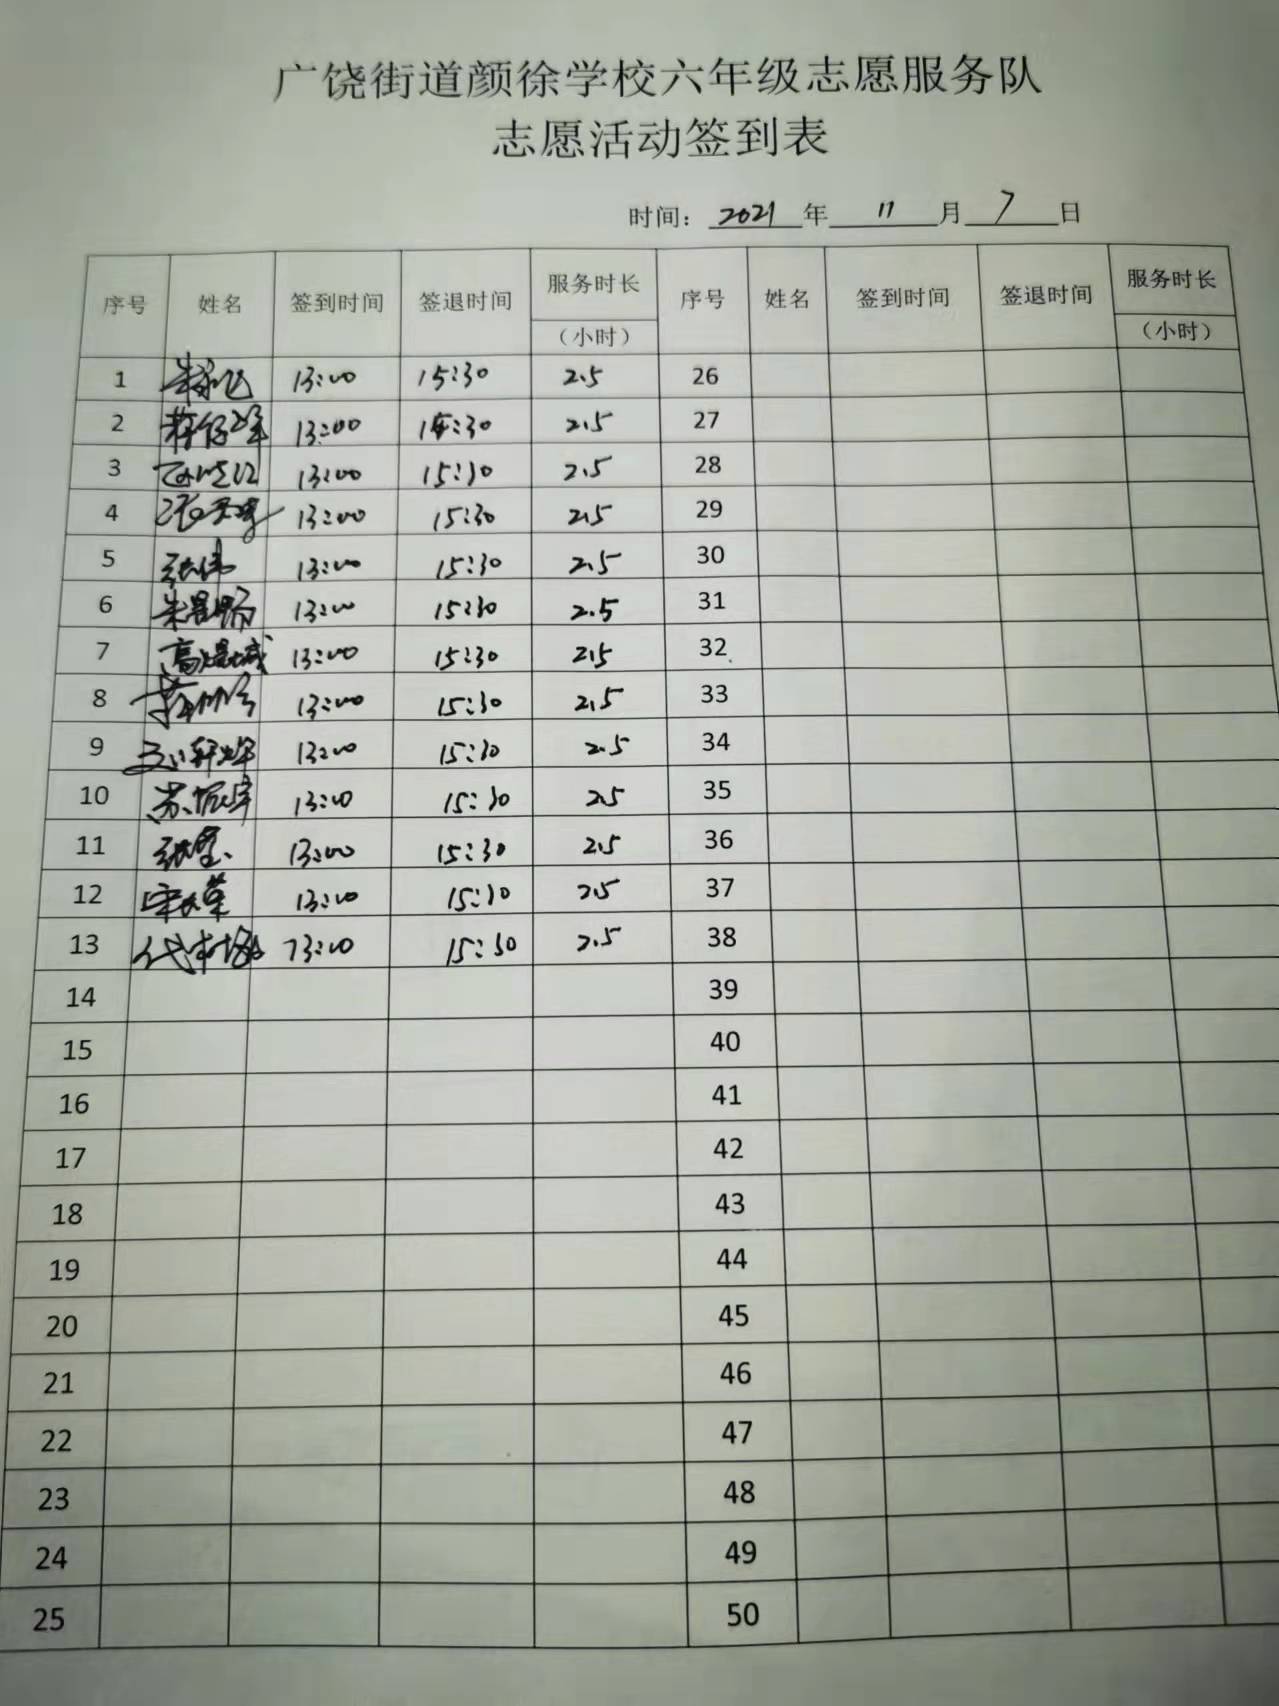 广饶街道颜徐学校六年级志愿服务队
志愿活动签到表
时间：2021年11月7日
序号 姓名 签到时间 签退时间 服务时长（小时） 序号 姓名 签到时间 签退时间 服务时长（小时）
1 13:00 15:30 2.5 26
2 13:00 15:30 2.5 27
3 13:00 15:30 2.5 28
4 13:00 15:30 2.5 29
5 张伟 13:00 15:30 2.5 30
6 13:00 15:30 2.5 31
7 13:00 15:30 2.5 32
8 13:00 15:30 2.5 33
9 13:00 15:30 2.5 34
10 苏振宇 13:00 15:30 2.5 35
11 13:00 15:30 2.5 36
12 13:00 15:30 2.5 37
13 13:00 15:30 2.5 38
14 39
15 40
16 41
17 42
18 43
19 44
20 45
21 46
22 47
23 48
24 49
25 50